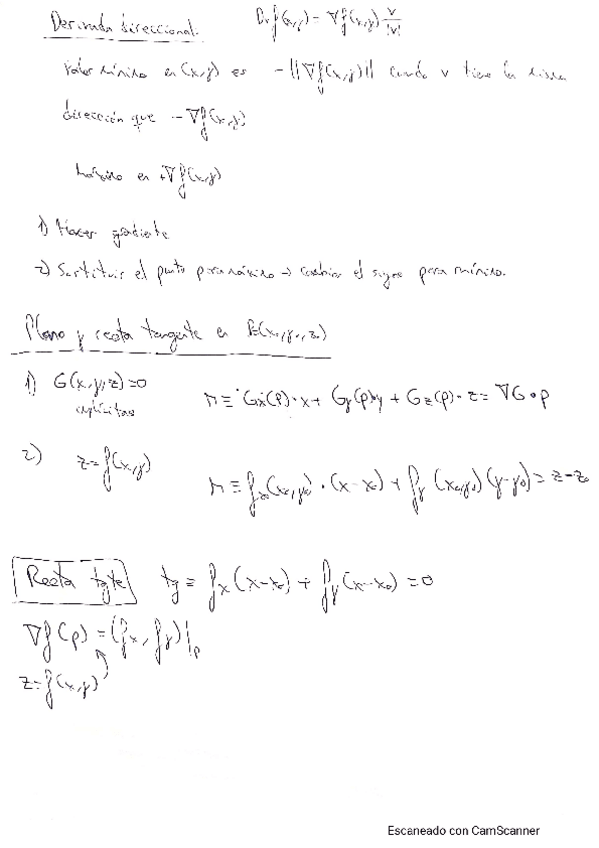 Derivada direccional. Dv f(x,y) = ∇f(x,y) v/|v|
Valor mínimo en (x,y) es -||∇f(x,y)|| cuando v tiene la misma
dirección que -∇f(x,y)
Máximo en +∇f(x,y)
1) Hacer gradiente
2) Sustituir el punto para máximo → cambiar el signo para mínimo.
Plano y recta tangente en P=(x₀,y₀,z₀)
1) G(x,y,z)=0
π ≡ Gx(P)·x + Gy(P)·y + Gz(P)·z = ∇G·p
2) z=f(x,y)
π ≡ fx(x₀,y₀)·(x-x₀) + fy(x₀,y₀)(y-y₀) = z-z₀
Recta tgte tg ≡ fx(x-x₀) + fy(x-x₀) = 0
∇f(p) = (fx, fy)|p
z=f(x,y)
Escaneado con CamScanner